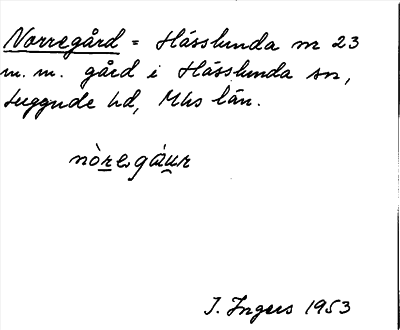 Norregård = Hässlunda nr 23
m.m. gård i Hässlunda sn,
Luggude hd, Mhs län.
nòregáur
I. Ingers 1953